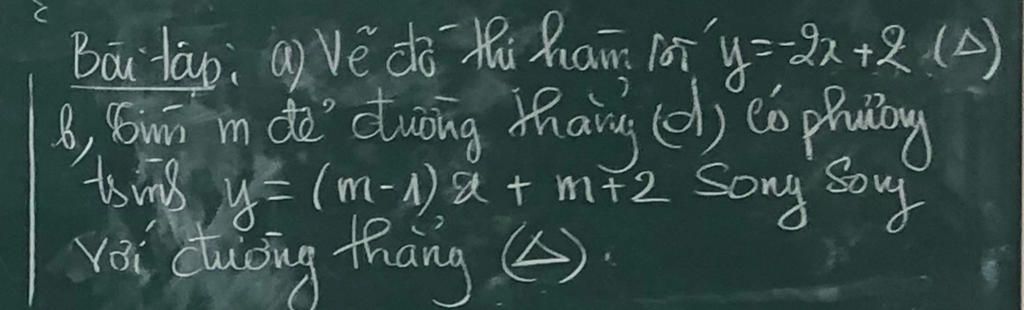 Bài tập: a) Vẽ đồ thi hàm số y=-2x+2 (Δ)
b, Tìm m để đường thẳng (d) có phương
trình y=(m-1)x + m+2 Song Song
Với đường thẳng (Δ).